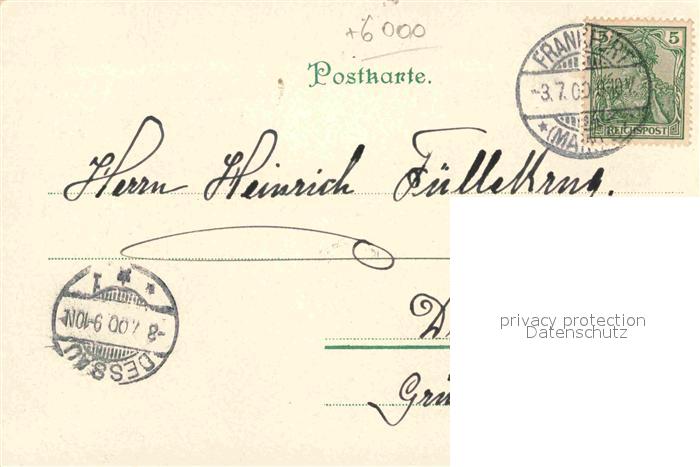 +6000
Postkarte.
FRANKFURT
-3.7.00
*(MAIN)
5
REICHSPOST
Herrn Heinrich Füllekrug.
privacy protection
Datenschutz
* * 1
-8.7.00 9-10N.
DESSAU
D
Grü